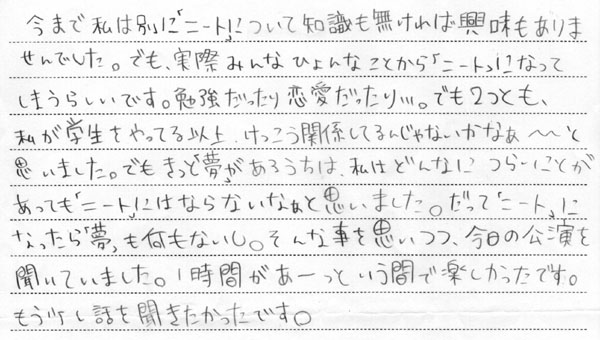 今まで私は別に「ニート」について知識も無ければ興味もありま
せんでした。でも、実際みんなひょんなことから「ニート」になって
しまうらしいです。勉強だったり恋愛だったり…。でも2つとも、
私が学生をやってる以上、けっこう関係してるんじゃないかなぁ〜〜と
思いました。でもきっと「夢」があるうちは、私はどんなにつらーいことが
あっても「ニート」にはならないなぁと思いました。だって「ニート」に
なったら「夢」も何もないし。そんな事を思いつつ、今日の公演を
聞いていました。1時間があーっという間で楽しかったです。
もう少し話を聞きたかったです。